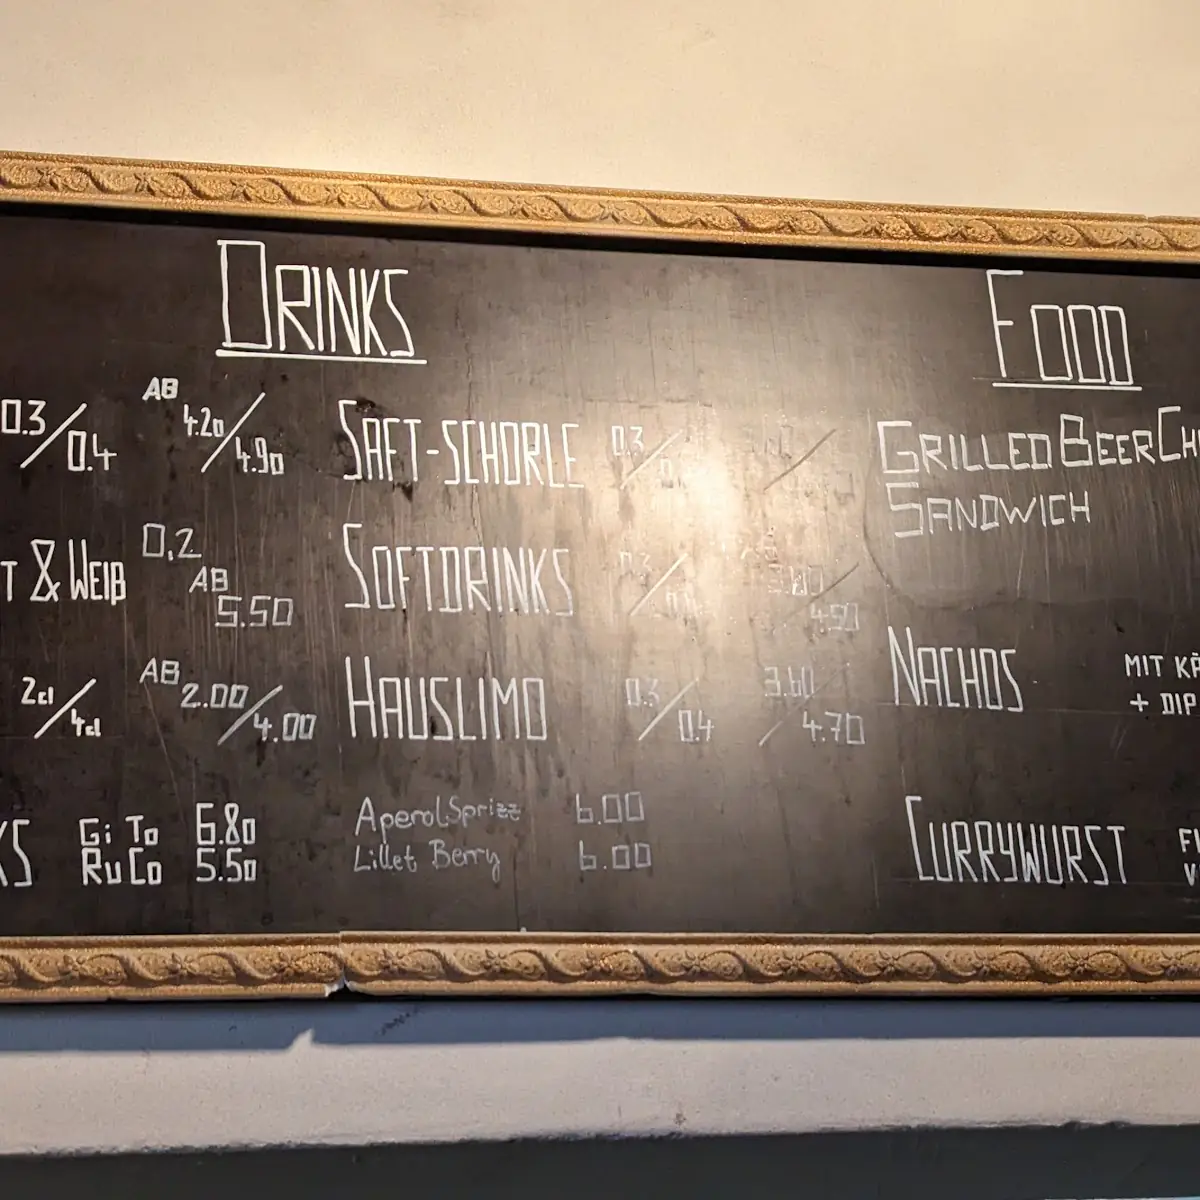 DRINKS
0.3/0.4 AB 4.20/4.90
& WEIß 0,2 AB 5.50
2cl/4cl AB 2.00/4.00
GiTo 6.80
RuCo 5.50
SAFT-SCHORLE 0.3/
SOFTDRINKS 0.3/ 4.50
HAUSLIMO 0.3/0.4 3.60/4.70
AperolSprizz 6.00
Lillet Berry 6.00
FOOD
GRILLED BEER
SANDWICH
NACHOS MIT
+ DIP
CURRYWURST